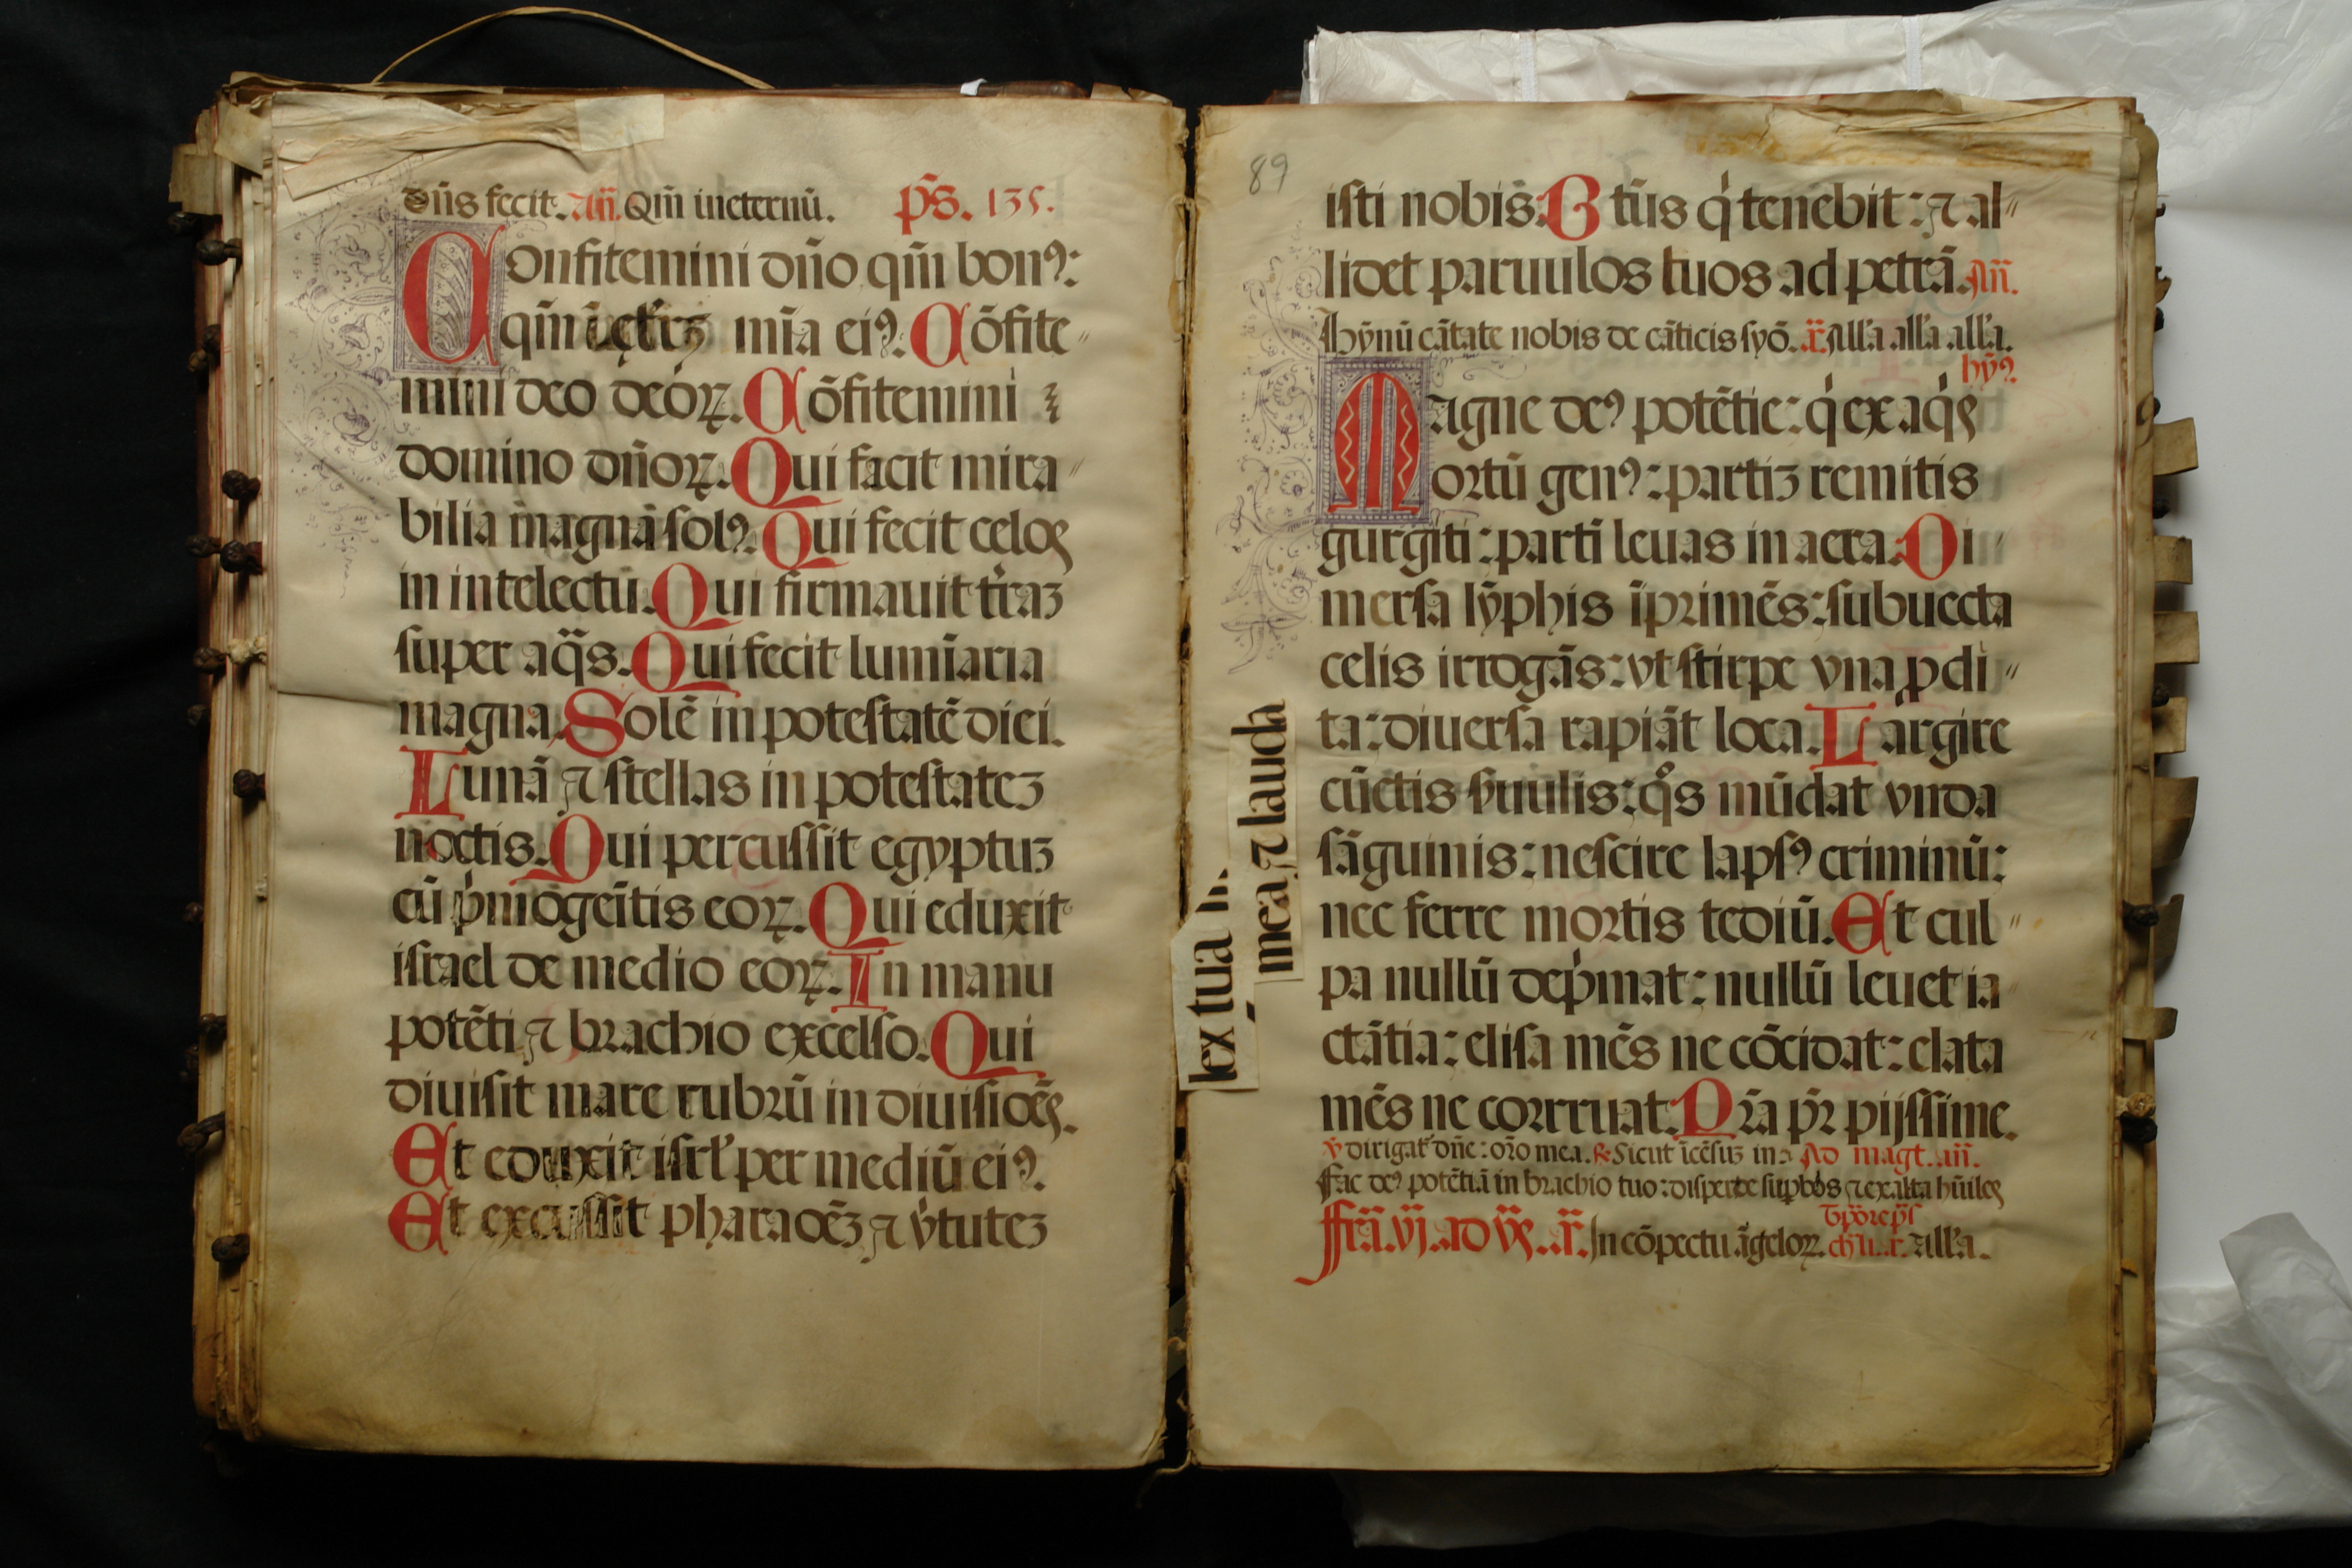 dn̄s fecit. an̄. Qm̄ ineternū. ps̄. 135.
Confitemini dn̄o qm̄ bonꝰ:
qm̄ mīa eiꝰ. Cōfite〃
mini deo deoꝝ. Cōfitemini
domino dn̄oꝝ. Qui facit mira〃
bilia magna solꝰ. Qui fecit celos
in intelectu. Qui firmauit tr̄aꝫ
super aq̄s. Qui fecit lumīaria
magna. Solē in potestatē diei.
Lunā ⁊ stellas in potestateꝫ
noctis. Qui percussit egyptuꝫ
cū pͥmogeītis eoꝝ. Qui eduxit
israel de medio eoꝝ. In manu
potēti ⁊ brachio excelso. Qui
diuisit mare rubrū in diuisiōēs.
Et eduxit isrl̄ per mediū eiꝰ.
Et excussit pharaoēꝫ ⁊ v̓tuteꝫ
89
isti nobis: Btūs qͥ tenebit: ⁊ al〃
lidet paruulos tuos ad petrā. An̄.
hȳnū cātate nobis de cāticis syō. r̄. All'a all'a all'a.
hȳꝰ
Magne deꝰ potētie: qͥ ex aqͥs
ortū genꝰ: partiꝫ remitis
gurgiti: partī leuas in aera. Di〃
mersa lȳphis īprimēs: subuecta
celis irrogās: vt stirpe vna ꝓdi〃
ta: diuersa rapiāt loca. Largire
cūctis s̄uulis: qͦs mūdat vnda
sāguinis: nescire lapsꝰ criminū:
nec ferre mortis tediū. Et cul〃
pa nullū depͥmat: nullū leuet ia
ctātia: elisa mēs ne cōcidat: elata
mēs ne corrruat. Pr̄a pr̄ pijssime.
v̄ dirigat̄ dn̄e: orō mea. ℟. Sicut īcēsuꝫ in. Ad magt. an̄.
Fac deꝰ potētiā in brachio tuo: disperde supbos ⁊ exalta hūiles
tp̄ore ps̄
Fr̄a. vj. ad vs̄. r̄. In cōpectu āgeloꝝ. r̄. all'a.
lex tua
mea, ⁊ lauda